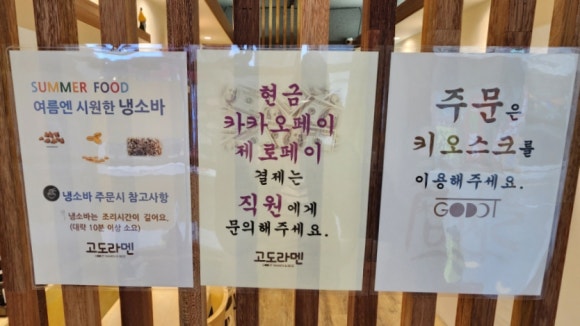 SUMMER FOOD
여름엔 시원한 냉소바
냉소바 주문시 참고사항
냉소바는 조리시간이 길어요.
(대략 10분 이상 소요)
고도라멘
현금
카카오페이
제로페이
결제는
직원에게
문의해주세요.
고도라멘
주문은
키오스크를
이용해주세요.
GODOT